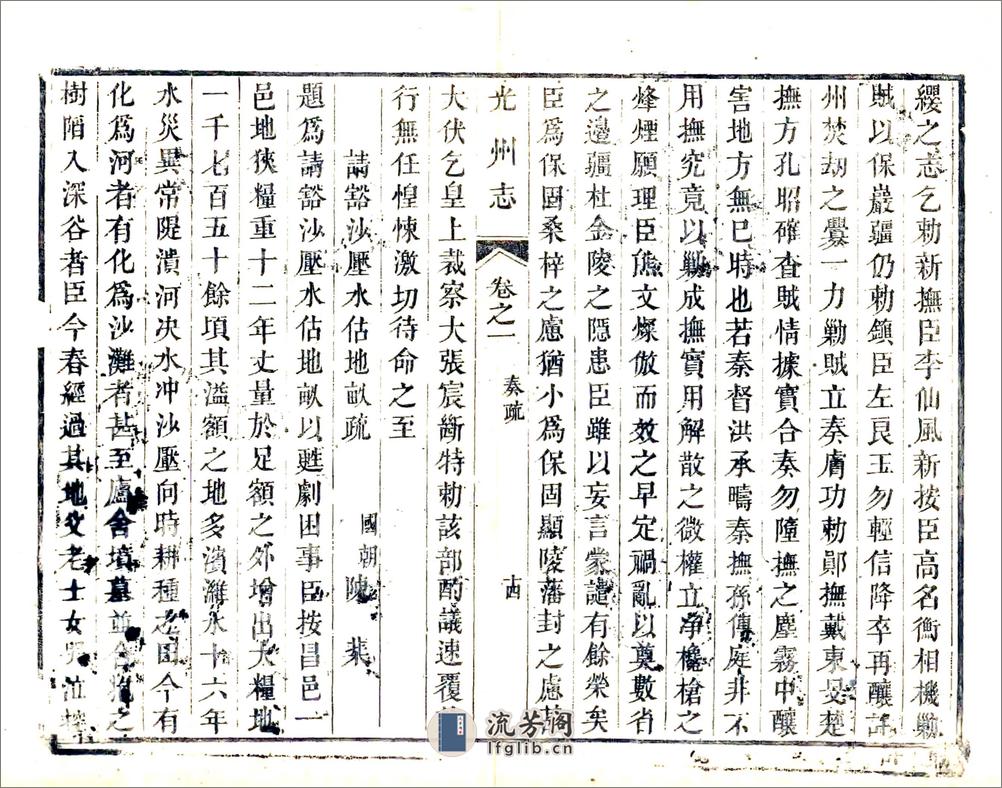 纓之志乞勅新撫臣李仙風新按臣高名衡相機勦
賊以保巖疆仍勅鎮臣左良玉勿輕信降卒再釀
州焚刼之釁一力勦賊立奏膚功勅鄖撫戴東旻楚
撫方孔昭確查賊情據實合奏勿墮撫之塵霧中釀
害地方無已時也若秦督洪承疇秦撫孫傳庭非不
用撫究竟以勦成撫實用解散之微權立淨欃槍之
烽煙願理臣熊文燦倣而效之早定禍亂以奠數省
之邊疆杜金陵之隱患臣雖以妄言蒙譴有餘榮矣
臣爲保固桑梓之慮猶小爲保固顯陵藩封之慮
大伏乞皇上裁察大張宸斷特勅該部酌議速覆
行無任惶悚激切待命之至
請豁沙壓水佔地畝疏 國朝陳 棐
題爲請豁沙壓水佔地畝以甦劇困事臣按昌邑一
邑地狹糧重十二年丈量於足額之外增出大糧地
一千七百五十餘頃其溢額之地多濱濰水十六年
水災異常隄潰河決水冲沙壓向時耕種之田今有
化爲河者有化爲沙灘者甚至廬舍墳墓並 之
樹陷入深谷者臣今春經過其地父老士女 泣
光州志
卷之一
奏疏
十四
流芳阁
lfglib.cn